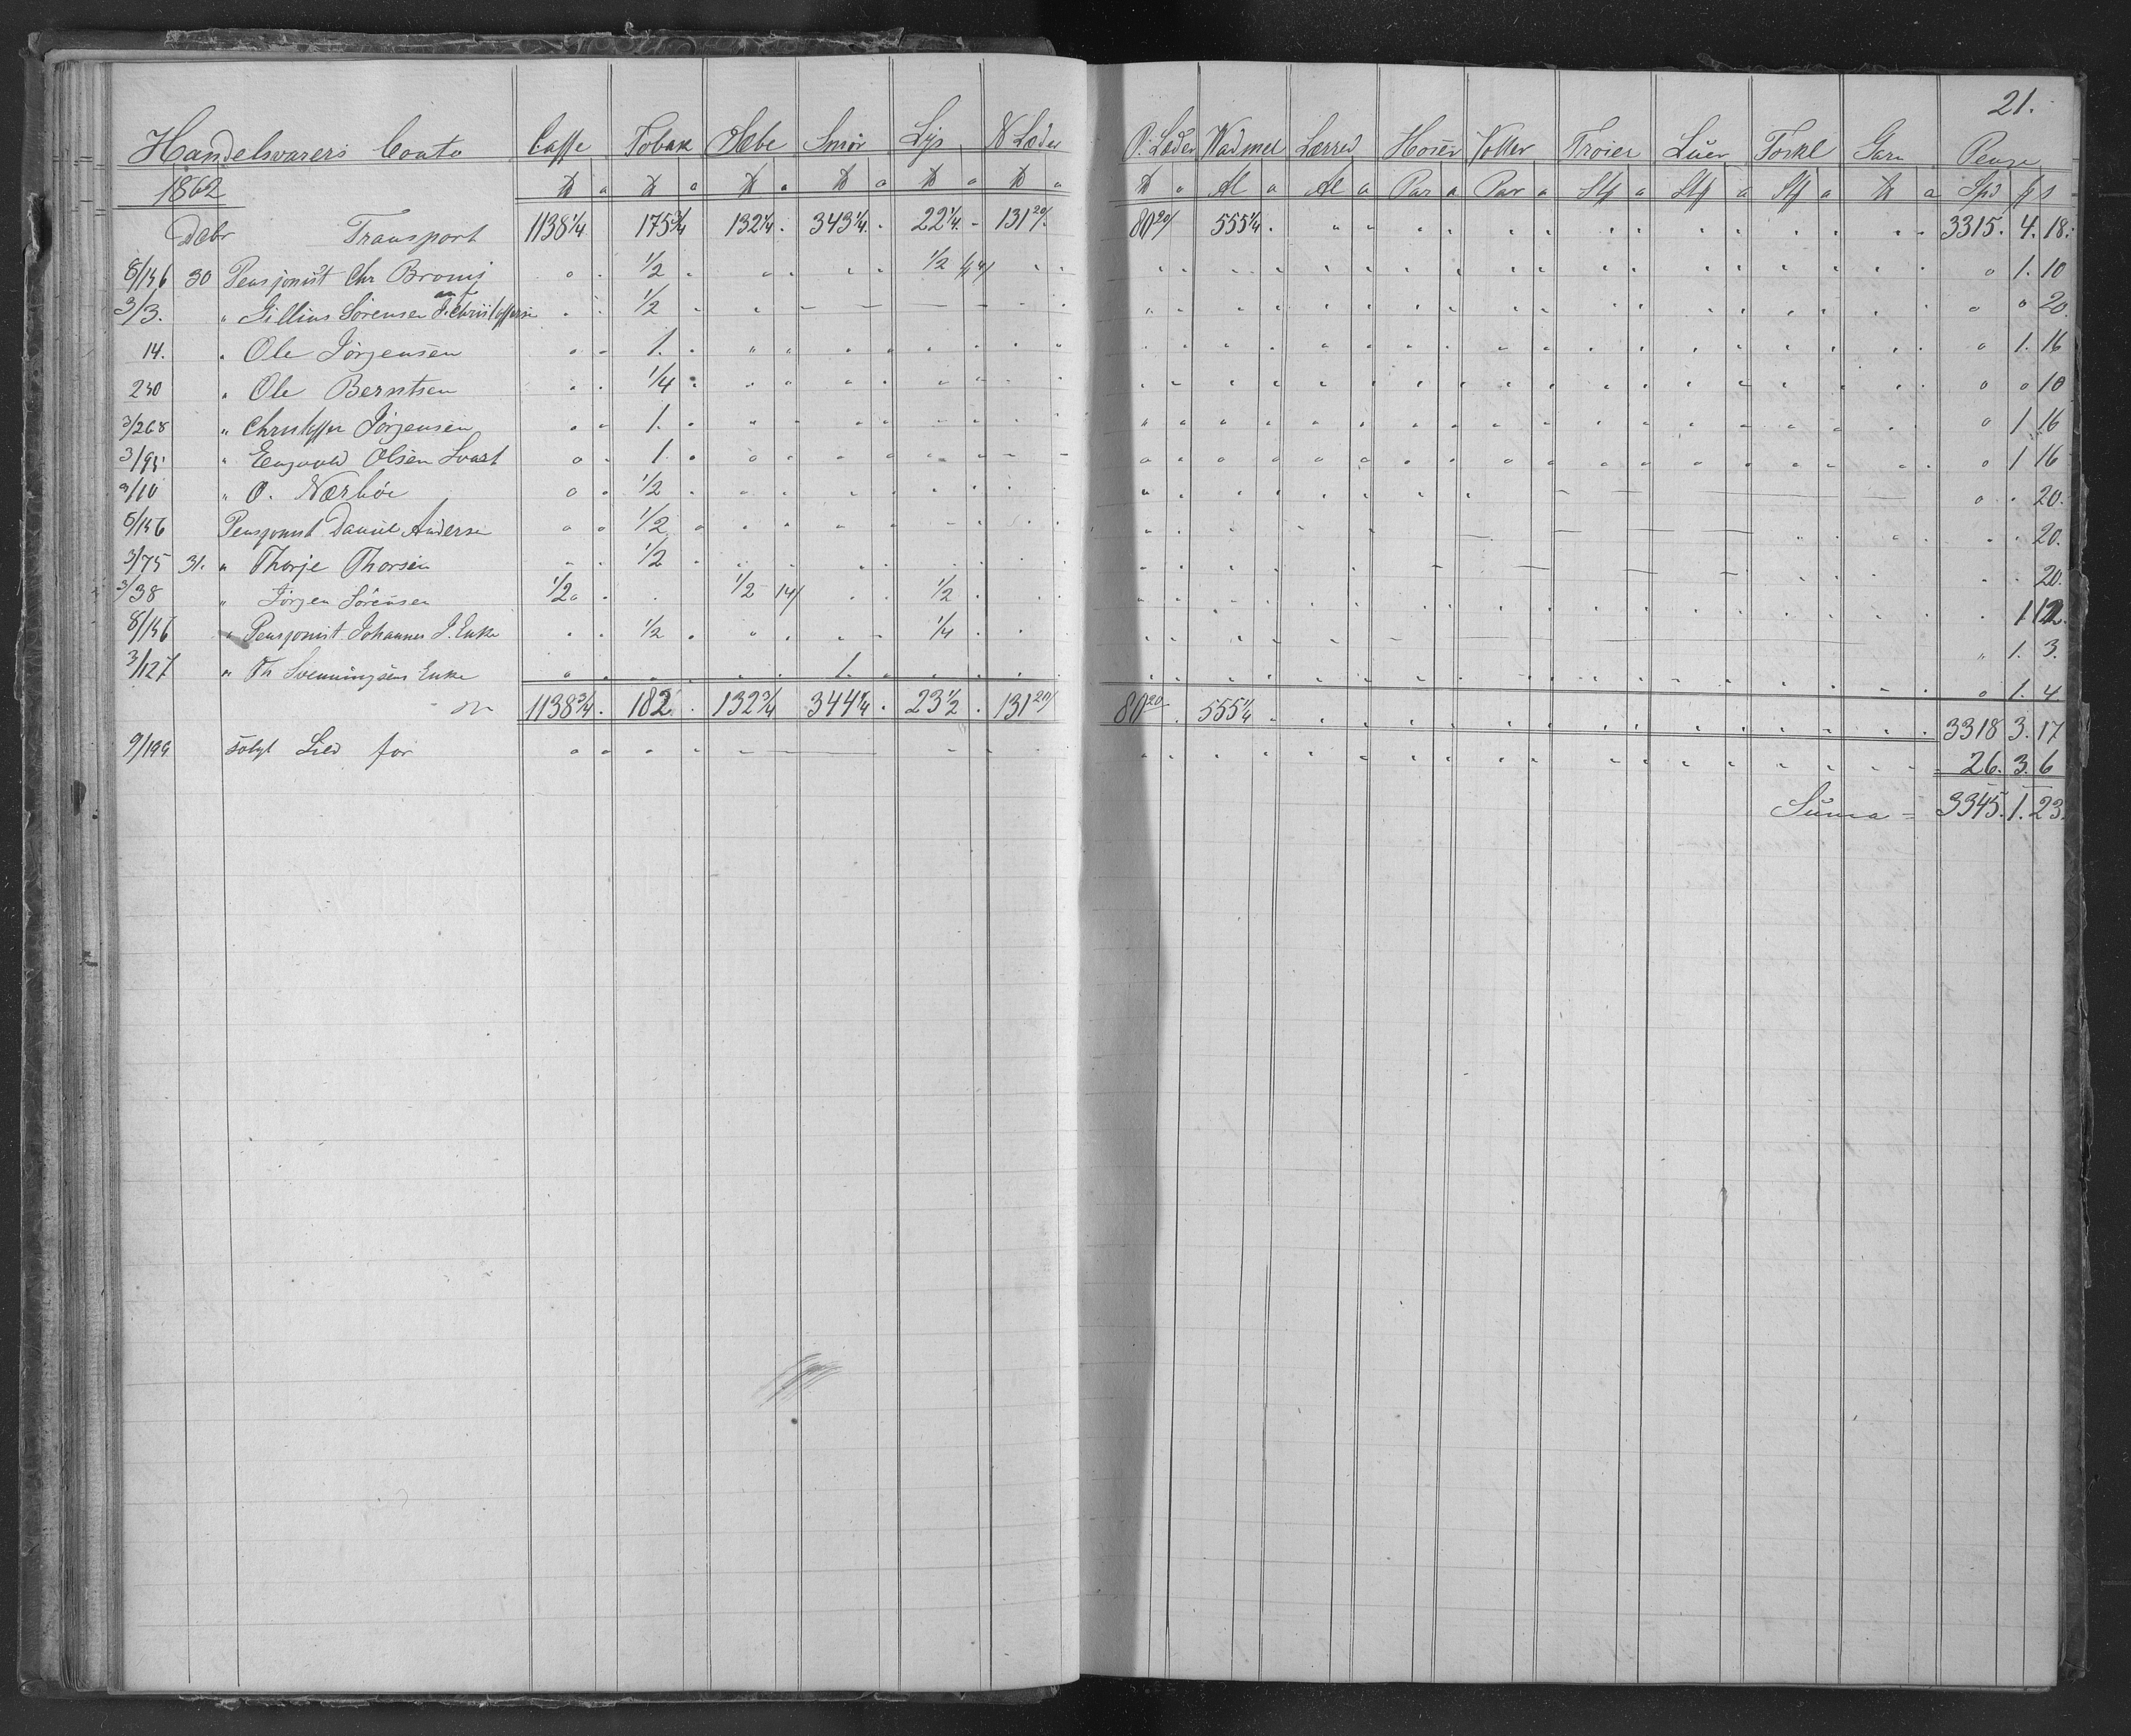 21.
Handelsvarers Conto Caffe Tobak Sæbe Smør Lys N Læder O. Læder Vadmel Lærred Hoser Votter Trøier Luer Törkl Garn Penge
1862 ℔ a ℔ a ℔ a ℔ a ℔ a ℔ a ℔ a Al a Al a Par a Par a Stk a Stk a Stk a ℔ a Spd ß s
Debr Transport 1138 1/4 175 3/4 132 1/4 343 1/4 22 1/4 131 20/ 80 20/ 555 1/4 3315. 4. 18.
8/156 30 Pensjonist Chr Bronij 1/2 1/2 1. 10
3/3. " Gillius Sörensen 1/2 20.
14. " Ole Jörgensen 1. 1. 16
230 " Ole Berntsen 1/4 10
3/268 " Christoffer Jörgensen 1. 1 16
3/95 " Engvald Olsen Svart 1. 1 16
3/10 " O. Nærböe 1/2 20.
8/156 Pensjonist Daniel Andersen 1/2 20.
3/75 31. " Thorje Thorsen 1/2 20.
3/38 " Jörgen Sörensen 1/2 1/2 14/ 1/2 1 12.
8/156 " Pensjonist Johannes J. Enke 1/2 1/4 1. 3.
3/127 " Th Svenningsens Enke 1. 1. 4
1138 3/4 182 132 3/4 344 1/4 23 1/2 131 20/ 80 20 555 1/4 3318 3. 17
9/199 solgt Sild for 26. 3. 6
Suma = 3345. 1. 23.